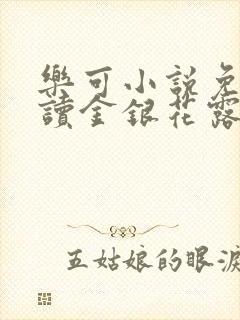 樂可小說免
讀金銀花露
五姑娘的眼淚